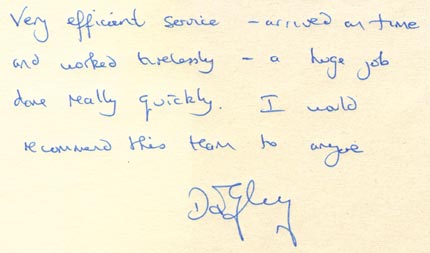 Very efficient service - arrived on time
and worked tirelessly - a huge job
done really quickly. I would
recommend this team to anyone